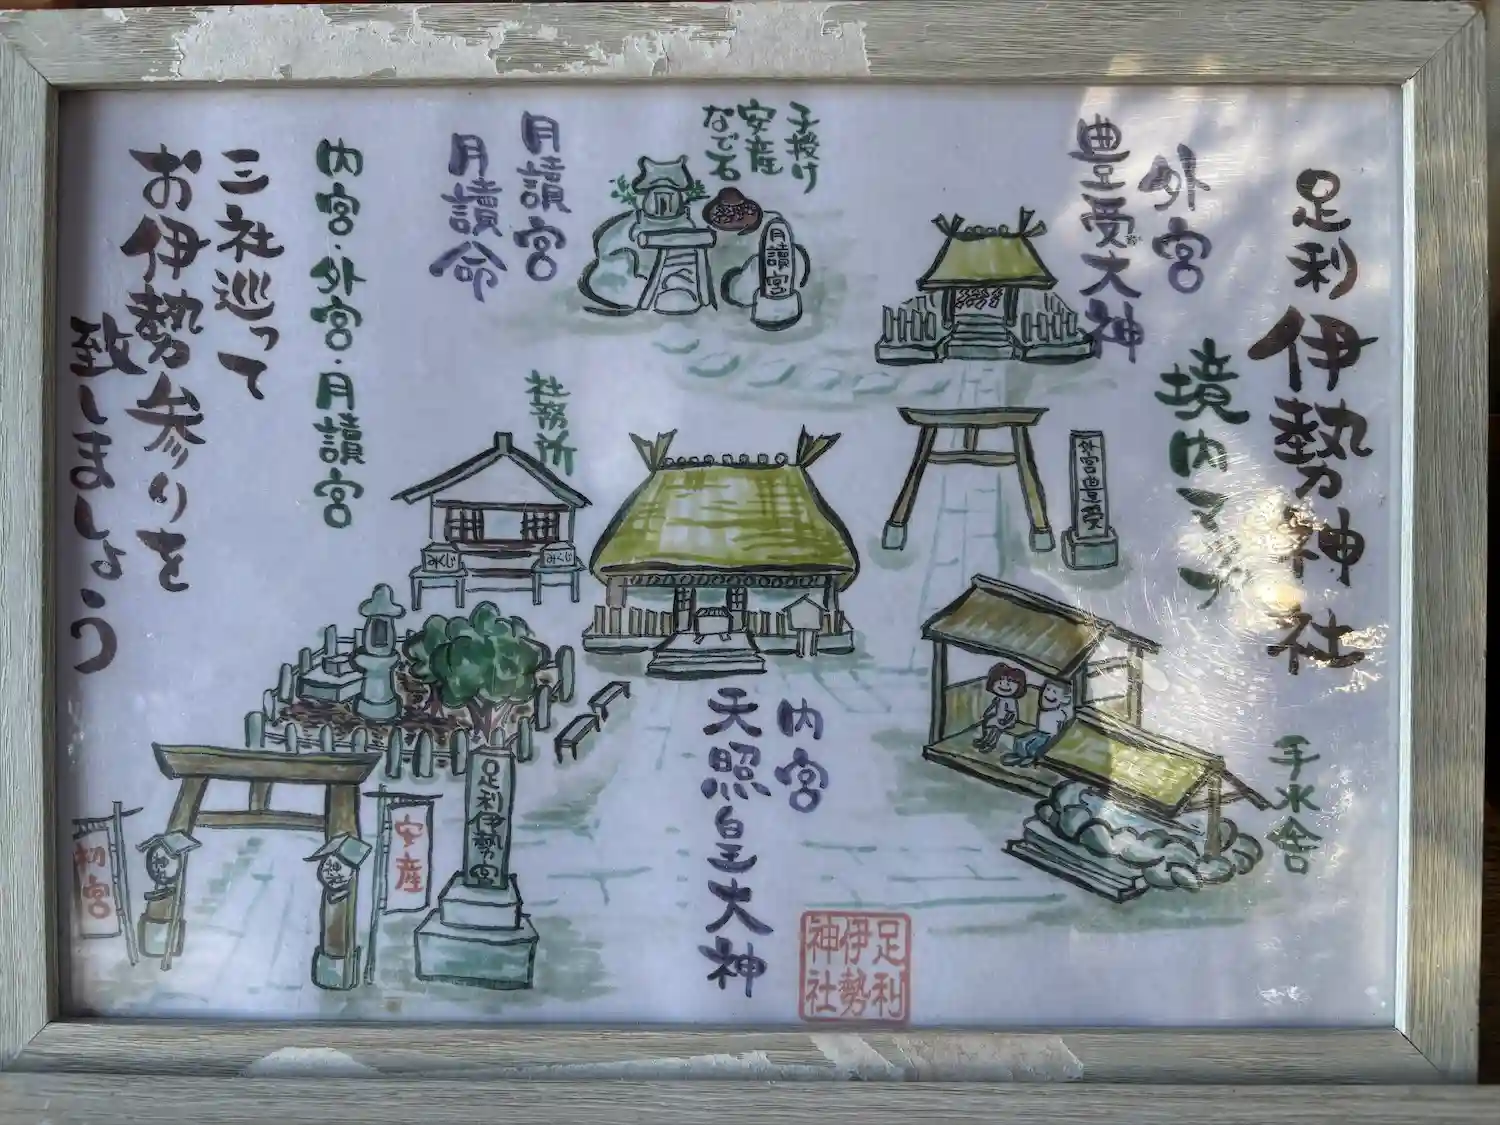 足利伊勢神社
境内マップ
外宮
豊受大神
子授け
安産
なで石
月讀宮
月讀宮
月讀命
内宮・外宮・月讀宮
三社巡って
お伊勢参りを
致しましょう
社務所
みくじ
みくじ
外宮豊受
手水舎
内宮
天照皇大神
足利伊勢宮
安産
初宮
神社
足利
伊勢
神社